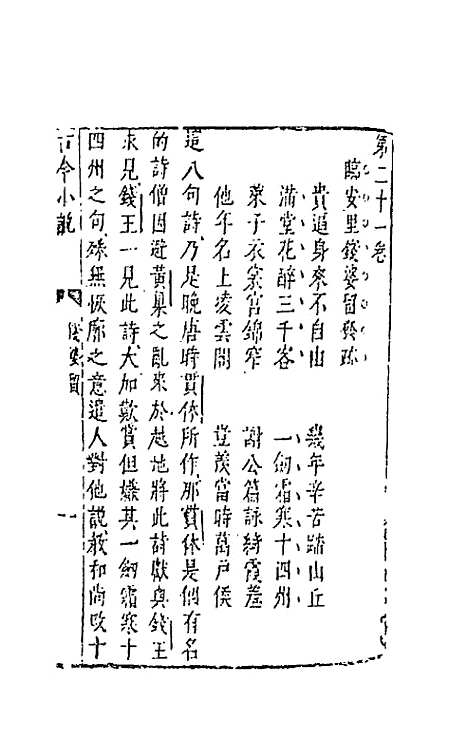 第二十一卷
臨安里錢婆留發跡
貴逼身來不自由　幾年辛苦踏山丘
滿堂花醉三千客　一劍霜寒十四州
萊子衣裳宮錦窄　謝公篇詠綺霞羞
他年名上凌雲閣　豈羨當時萬戶侯
這八句詩乃是晚唐時貫休所作那貫休是個有名
的詩僧因避黃巢之亂來於越地將此詩獻與錢王
求見錢王一見此詩大加歎賞但嫌其一劍霜寒十
四州之句殊無恢廓之意遣人對他說教和尚改十
古今小說　錢婆留　一